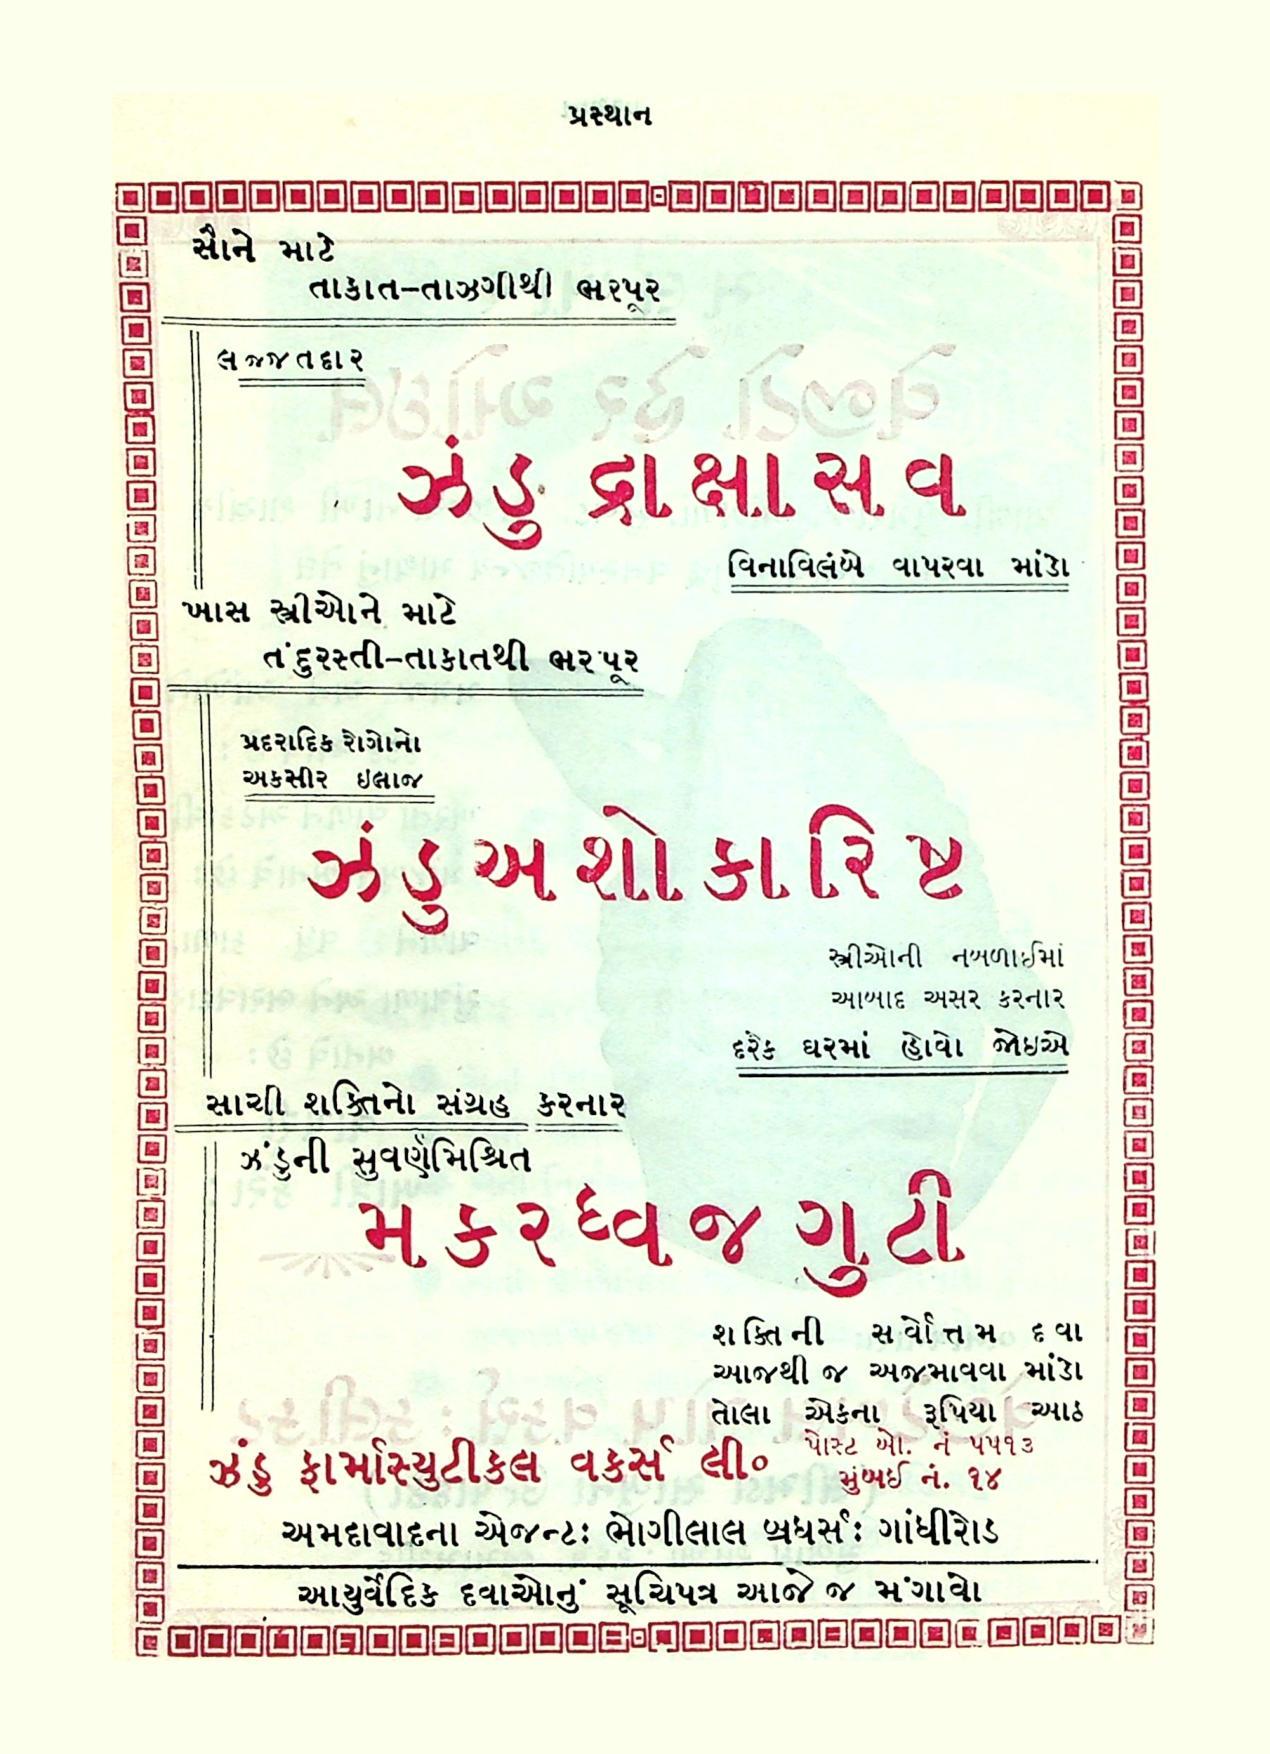 પ્રસ્થાન
સૌને માટે
તાકાત-તાઝગીથી ભરપૂર
લજ્જતદાર
ઝંડુ દ્રાક્ષાસવ
વિનાવિલંબે વાપરવા માંડો
ખાસ સ્ત્રીઓને માટે
તંદુરસ્તી-તાકાતથી ભરપૂર
પ્રદરાદિક રોગોનો
અકસીર ઇલાજ
ઝંડુ અશોકારિષ્ટ
સ્ત્રીઓની નબળાઈમાં
આબાદ અસર કરનાર
દરેક ઘરમાં હોવો જોઇએ
સાચી શક્તિનો સંગ્રહ કરનાર
ઝંડુની સુવર્ણમિશ્રિત
મકરધ્વજ ગુટી
શક્તિની સર્વોત્તમ દવા
આજથી જ અજમાવવા માંડો
તોલા એકના રૂપિયા આઠ
ઝંડુ ફાર્માસ્યુટીકલ વર્કસ લી૦ પોસ્ટ બો. નં ૫૫૧૩
મુંબઈ નં. ૧૪
અમદાવાદના એજન્ટ: ભોગીલાલ બ્રધર્સ: ગાંધીરોડ
આયુર્વેદિક દવાઓનું સૂચિપત્ર આજે જ મંગાવો